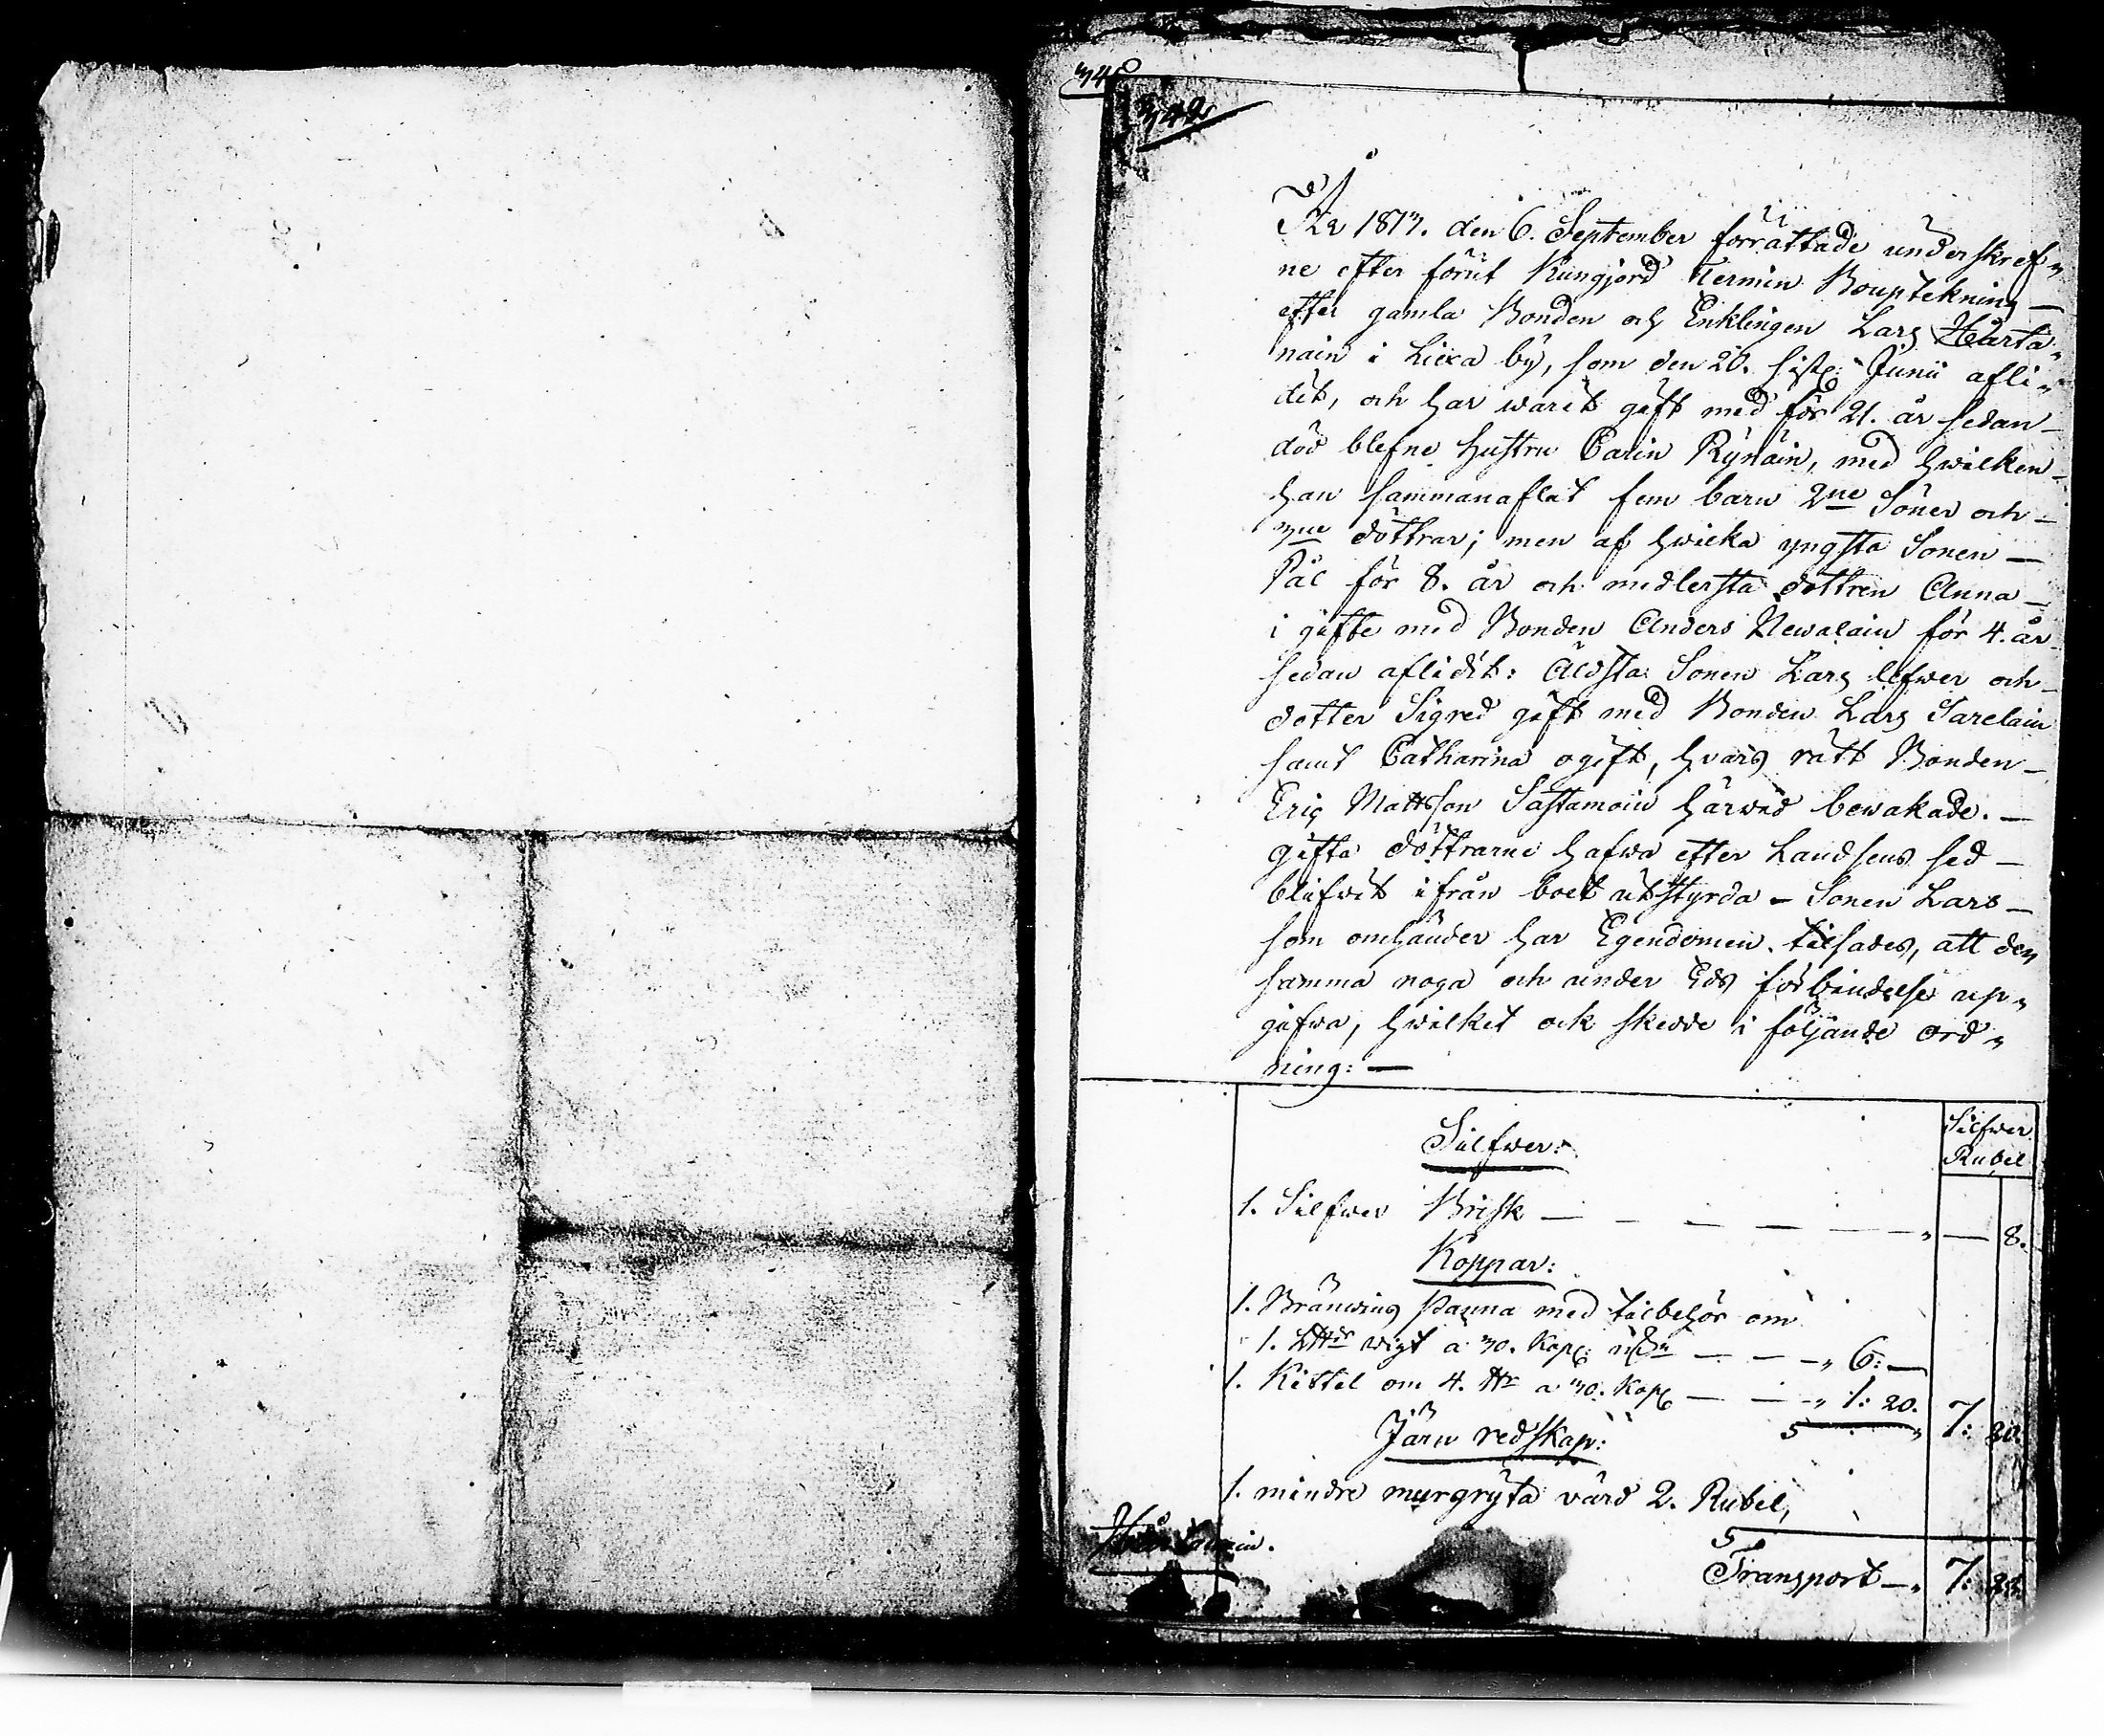 348
342
År 1813. den 6. September förrättade underskref„
ne efter förut kungjord termin Bouptekning —
efter gamla Bonden och Enklingen Lars Harta„
nain i Liexa by, som den 20. sistl: Junii afli„
dit, och har warit gift med för 21. år sedan —
död blefne hustru Carin Rynäin, med hwilken —
han sammanaflat fem barn 2ne Söner och —
3ne döttrar; men af hwilka yngsta Sonen —
Pål för 8. år och medlersta dottren Anna —
i gifte med Bonden Anders Newalain för 4. år
sedan aflidit: Äldsta Sonen Lars lefwer och —
dotter Sigred gift med Bonden Lars Sarelain
samt Catharina ogift, hvars rätt Bonden —
Eric Mattsson Sastamoin härwid bewakade. —
gifta döttrarne hafwa efter Landsens sed —
blifwit ifrån boet utstyrda — Sonen Lars —
som omhänder har Egendomen tilsades, att den
samma noga och under Eds förbindelse up„
gifwa, hwilket ock skedde i följande ord„
ning: —
Silfwer
Rubel
Silfwer:
1. Silfwer Brisk — — — — — „ — 8.
Koppar:
1. Bränwins panna med tilbehör om
1. L℔ wigt a 30. Kop: — — „ 6: —
1. Kittel om 4. ℔r a 30. Kop — — „ 1: 20. 7: 20.
Järn redskap:
1. mindre murgryta värd 2. Rubel,
Transport — „ 7: 28.